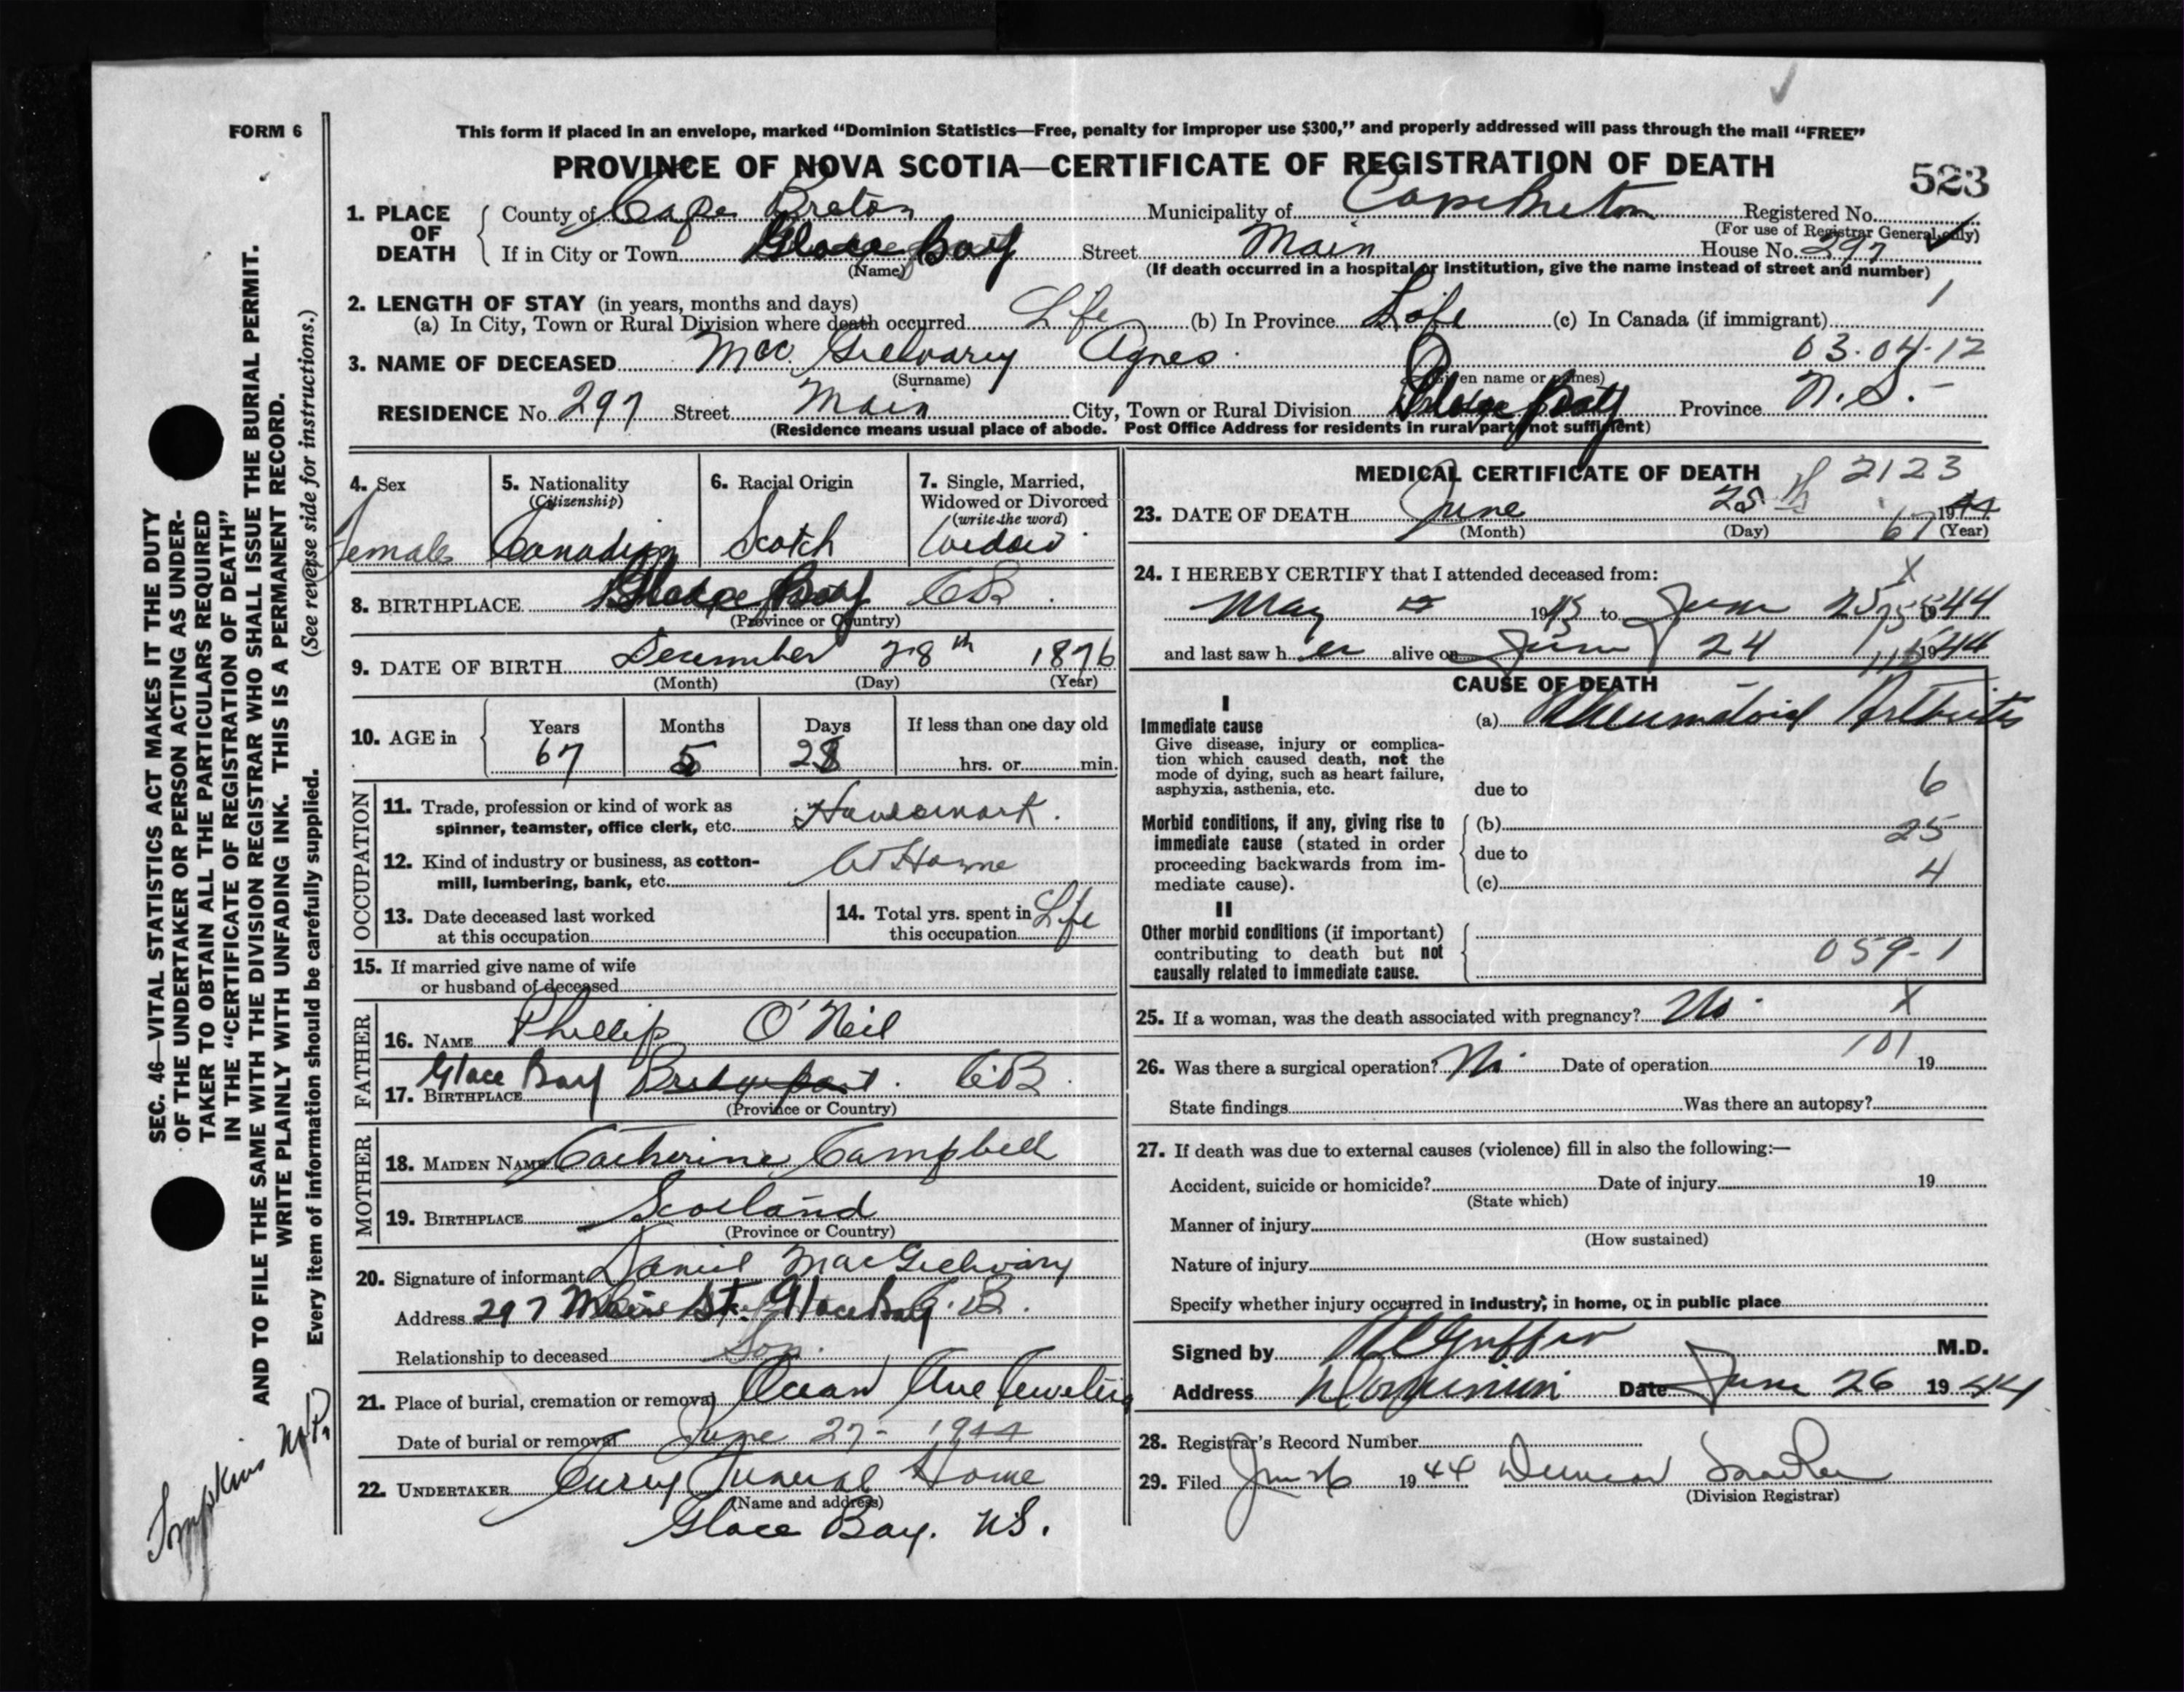 FORM 6
This form if placed in an envelope, marked “Dominion Statistics—Free, penalty for improper use $300,” and properly addressed will pass through the mail “FREE”
PROVINCE OF NOVA SCOTIA—CERTIFICATE OF REGISTRATION OF DEATH
523
1. PLACE OF DEATH
County of Cape Breton Municipality of Cape Breton Registered No.
(For use of Registrar General only)
If in City or Town Glace Bay Street Main House No. 297
(Name) (If death occurred in a hospital or institution, give the name instead of street and number)
2. LENGTH OF STAY (in years, months and days) 1
(a) In City, Town or Rural Division where death occurred Life (b) In Province Life (c) In Canada (if immigrant)
3. NAME OF DECEASED Mac Gillvary Agnes 03-04-12
(Surname) (Given name or names)
RESIDENCE No. 297 Street Main City, Town or Rural Division Glace Bay Province N.S.
(Residence means usual place of abode. Post Office Address for residents in rural parts not sufficient)
4. Sex
Female
5. Nationality
(Citizenship)
Canadian
6. Racial Origin
Scotch
7. Single, Married,
Widowed or Divorced
(write the word)
Widow
8. BIRTHPLACE Glace Bay CB
(Province or Country)
9. DATE OF BIRTH December 28th 1876
(Month) (Day) (Year)
10. AGE in
Years Months Days If less than one day old
67 5 28 hrs. or min.
OCCUPATION
11. Trade, profession or kind of work as
spinner, teamster, office clerk, etc. Housework.
12. Kind of industry or business, as cotton-
mill, lumbering, bank, etc. At Home
13. Date deceased last worked
at this occupation
14. Total yrs. spent in
this occupation Life
15. If married give name of wife
or husband of deceased
FATHER
16. NAME Phillip O'Neil
17. BIRTHPLACE Glace Bay Bridgeport. CB.
(Province or Country)
MOTHER
18. MAIDEN NAME Catherine Campbell
19. BIRTHPLACE Scotland
(Province or Country)
20. Signature of informant Daniel MacGillvary
Address 297 Main St. Glace Bay C.B.
Relationship to deceased Son.
21. Place of burial, cremation or removal Ocean Ave
Date of burial or removal June 27- 1944
22. UNDERTAKER Curry Funeral Home
(Name and address)
Glace Bay. N.S.
MEDICAL CERTIFICATE OF DEATH 2123
23. DATE OF DEATH June 25th 1944
(Month) (Day) 67 (Year)
24. I HEREBY CERTIFY that I attended deceased from: X
May 1943 to June 25 1944
and last saw her alive on June 24 1944
CAUSE OF DEATH
I
Immediate cause
Give disease, injury or complica-
tion which caused death, not the
mode of dying, such as heart failure,
asphyxia, asthenia, etc.
(a) Rheumatoid Arthritis
due to 6
Morbid conditions, if any, giving rise to
immediate cause (stated in order
proceeding backwards from im-
mediate cause).
(b) 25
due to
(c) 4
II
Other morbid conditions (if important)
contributing to death but not
causally related to immediate cause.
059-1
25. If a woman, was the death associated with pregnancy? No. X
101
26. Was there a surgical operation? No. Date of operation 19
State findings Was there an autopsy?
27. If death was due to external causes (violence) fill in also the following:—
Accident, suicide or homicide? Date of injury 19
(State which)
Manner of injury
(How sustained)
Nature of injury
Specify whether injury occurred in Industry, in home, or in public place
Signed by M.D.
Address Dominion Date June 26 1944
28. Registrar's Record Number
29. Filed Jun 26 1944 Duncan
(Division Registrar)
SEC. 46—VITAL STATISTICS ACT MAKES IT THE DUTY
OF THE UNDERTAKER OR PERSON ACTING AS UNDER-
TAKER TO OBTAIN ALL THE PARTICULARS REQUIRED
IN THE “CERTIFICATE OF REGISTRATION OF DEATH”
AND TO FILE THE SAME WITH THE DIVISION REGISTRAR WHO SHALL ISSUE THE BURIAL PERMIT.
WRITE PLAINLY WITH UNFADING INK. THIS IS A PERMANENT RECORD.
Every item of information should be carefully supplied. (See reverse side for instructions.)
Tompkins